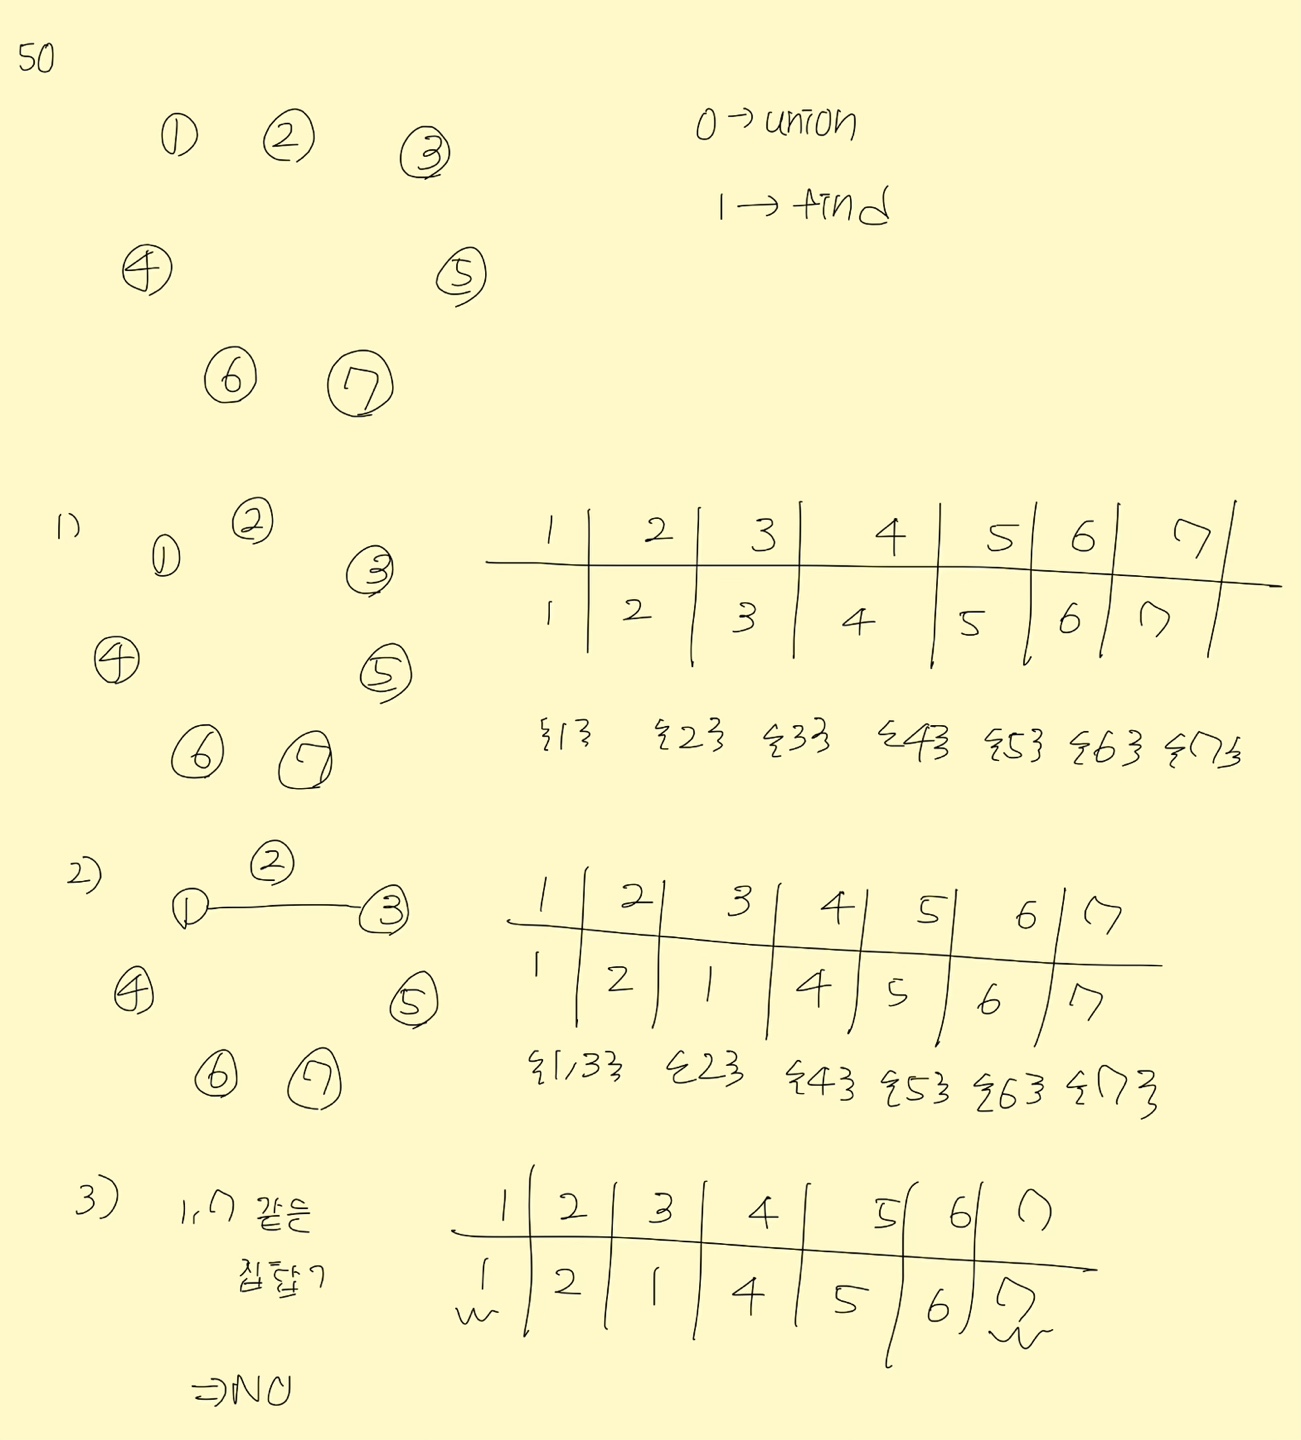 50
① ② ③
0 → union
1 → find
④ ⑤
⑥ ⑦
1)
① ② ③
④ ⑤
⑥ ⑦
1 2 3 4 5 6 7
1 2 3 4 5 6 7
{1} {2} {3} {4} {5} {6} {7}
2)
① ② ③
④ ⑤
⑥ ⑦
1 2 3 4 5 6 7
1 2 1 4 5 6 7
{1,3} {2} {4} {5} {6} {7}
3) 1,7 같은
집합?
1 2 3 4 5 6 7
1 2 1 4 5 6 7
⇒ NO